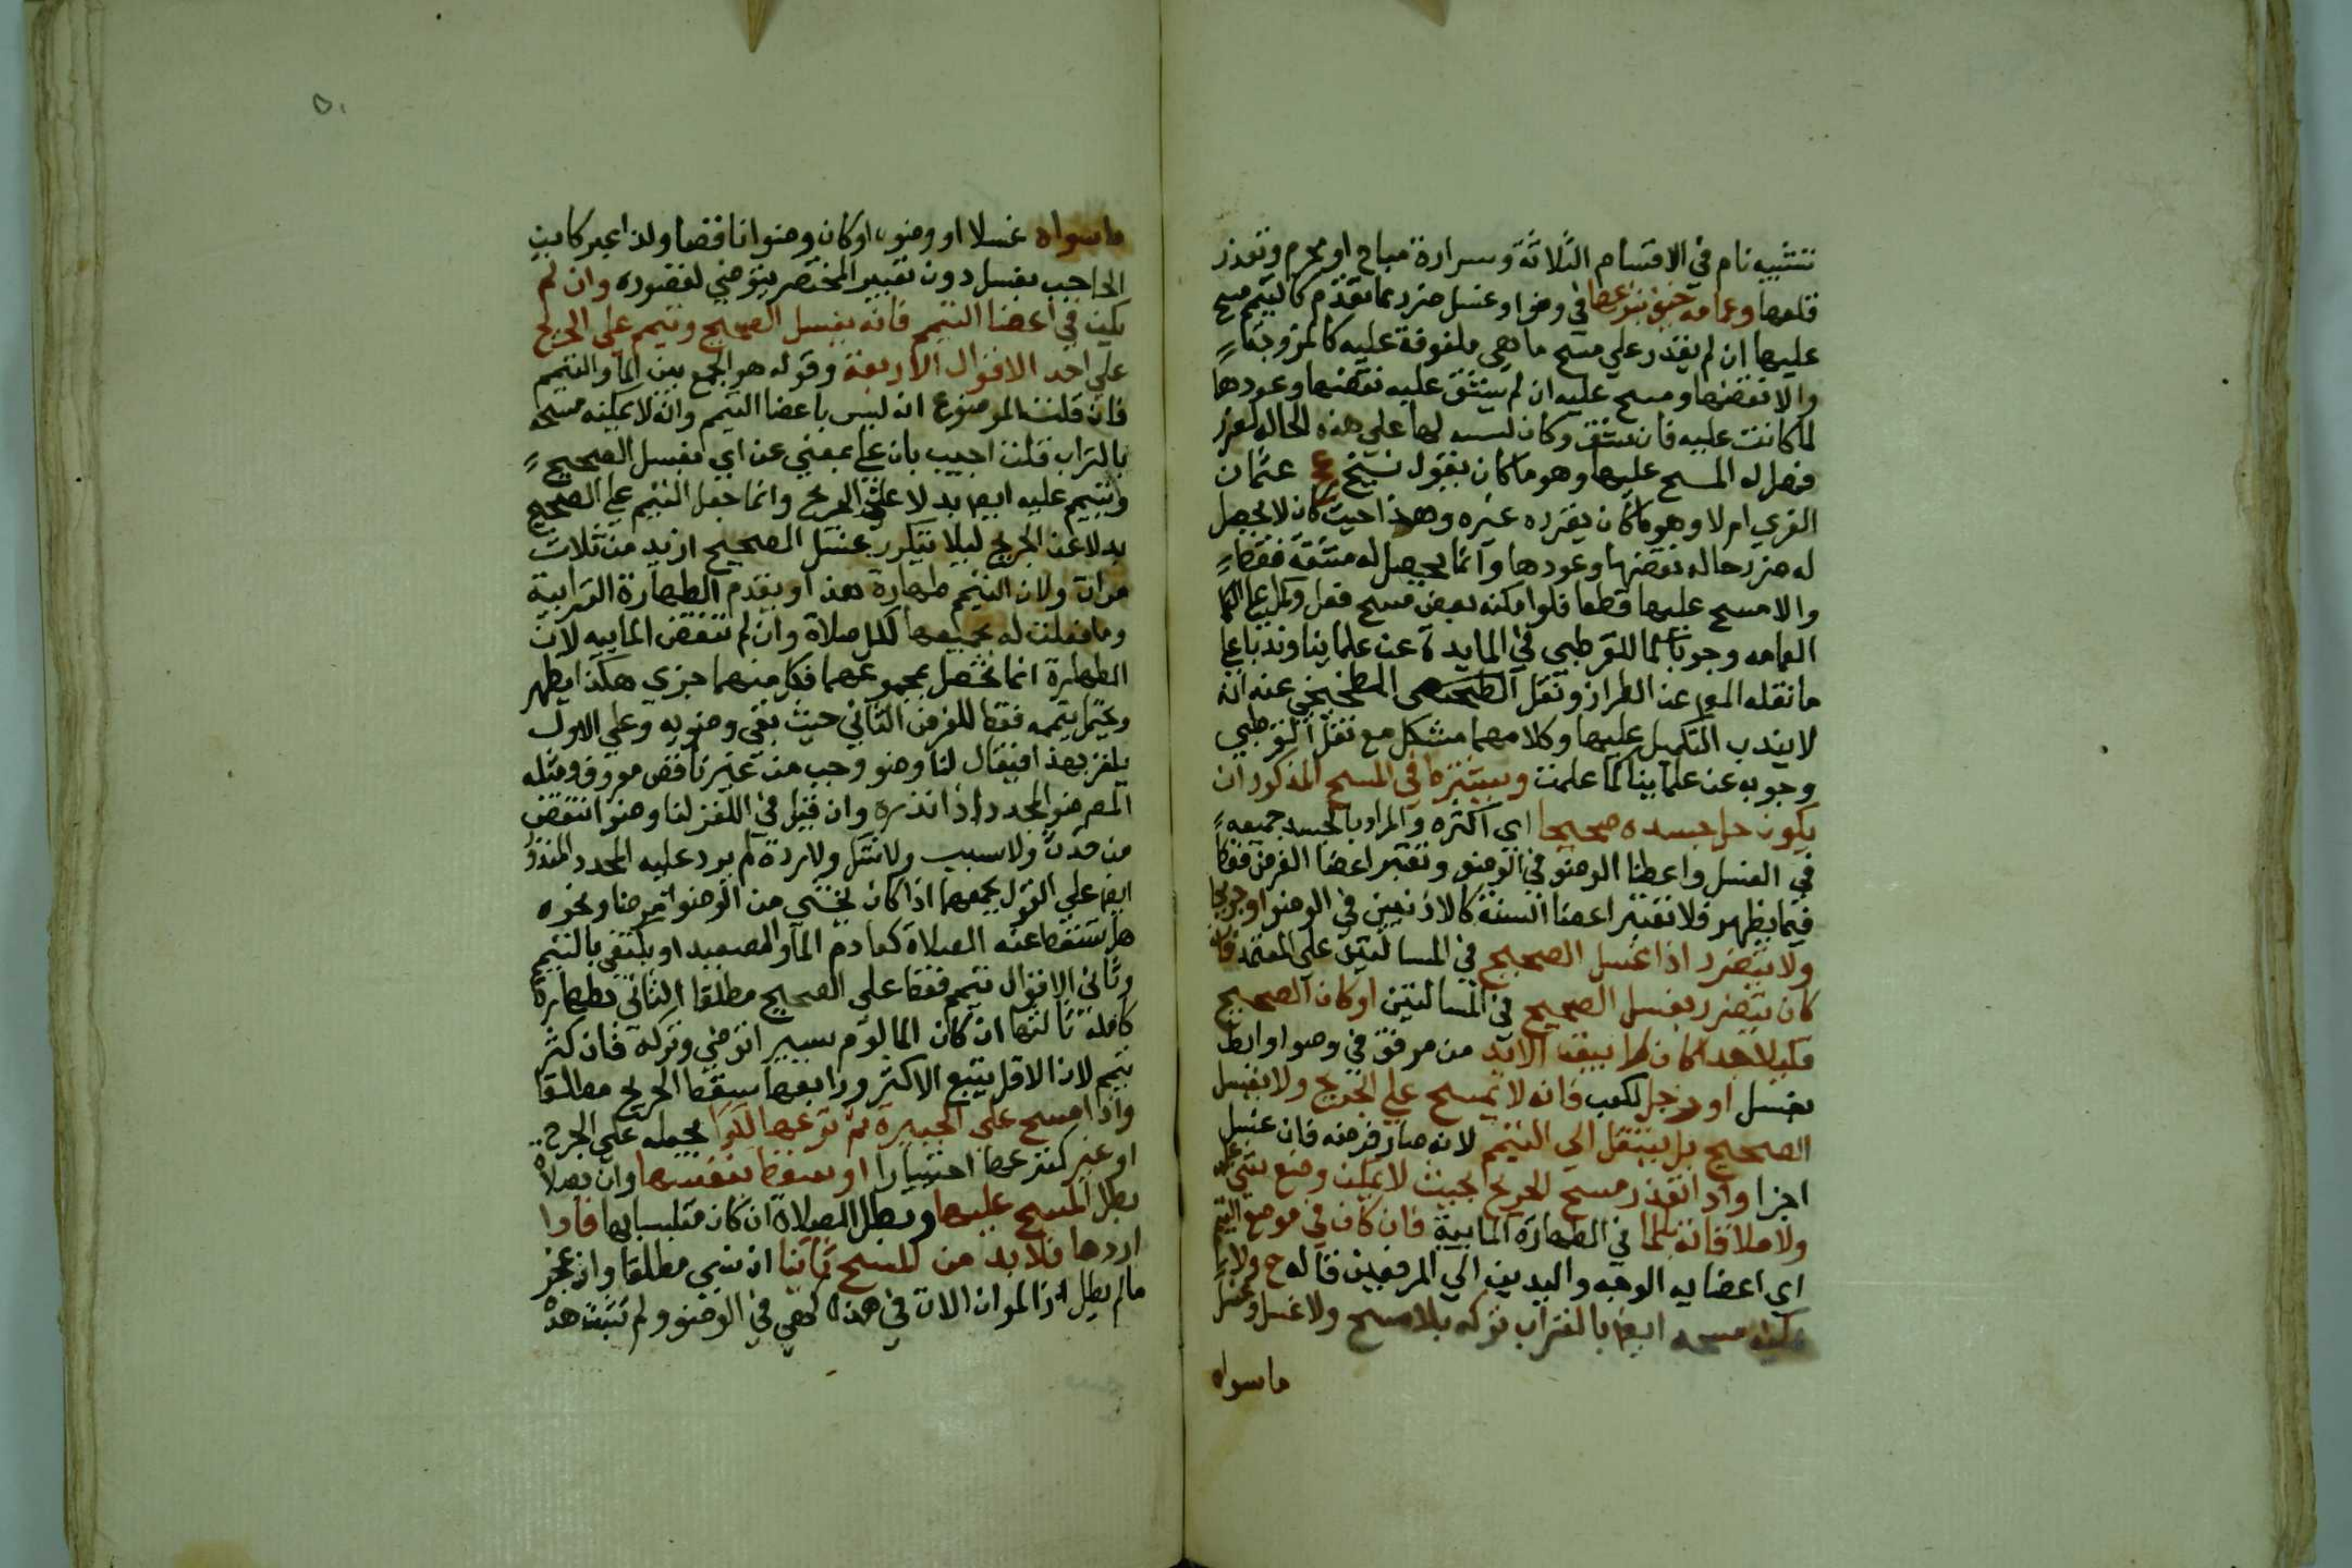 تشبيه تام في الاقسام الثلاثة وسرارة مباح او محرم وتعذر
قلعها وعمامه خيف بنزعها في وضوا وغسل ضرر مما تقدم كالتيمم مسح
عليها ان لم يقدر علي مسح ما هي ملفوفة عليه كالمزوجة
والا نقضها ومسح عليه ان لم يشق عليه نقضها وعودها
لما كانت عليه فان شق وكان لبسه لها علي هذه الحالة لعذر
فهل له المسح عليها وهو ما كان يقول شيخ عج عثمان
الغزي ام لا وهو ما كان يقرره غيره وهذا حيث كان لا يحصل
له ضرر حال نقضها وعودها وانما يحصل له مشقة فقط
والا مسح عليها قطعا فلو امكنه بعض مسح فعل وكمل علي
العمامه وجوبا كما للقرطبي في المايدة عن علماينا وندبا علي
ما نقله المص عن الطراز ونقل الطخيخي عنه انه
لا يندب التكميل عليها وكلامهما مشكل مع نقل القرطبي
وجوبه عن علماينا كما علمت ويشترط في المسح المذكور ان
يكون جل جسده صحيحا اي اكثره والمراد بالجسد جميعه
في الغسل واعضا الوضو في الوضو وتعتبر اعضا الفرض فقط
فيما يظهر فلا تعتبر اعضا السنة كالاذنين في الوضوا وجريحا
ولا يتضرر اذا غسل الصحيح في المسالتين علي المعتمد فان
كان يتضرر بغسل الصحيح في المسالتين او كان الصحيح
قليلا جدا كان لم يبق الا يد من مرفق في وضوا وابط
بغسل او رجل لكعب فانه لا يمسح علي الجرح ولا يغسل
الصحيح بل ينتقل الي التيمم لانه صار فرضه فان غسل
اجزا واذا تعذر مسح الجرح بحيث لا يمكن وضع شي عليه
ولا ملاقاته بالما في الطهارة المايية فان كان في موضع التيمم
اي اعضايه الوجه واليدين الي المرفقين قاله ح ولا
يمكنه مسحه ايضا بالتراب تركه بلا مسح ولا غسل وغسل
ماسواه
ماسواه غسلا او وضوا وكان وضوا ناقصا ولذا عبر كابن
الحاجب بغسل دون تعبير المختصر بتوضي لقصوره وان لم
يكن في اعضا التيمم فانه يغسل الصحيح ويتيمم علي الجريح
علي احد الاقوال الاربعة وقوله هو الجمع بين الما والتيمم
فان قلت الموضوع انه ليس باعضا التيمم وانه لا يمكنه مسحه
بالتراب قلت اجيب بان علي بمعني عن اي يغسل الصحيح
ويتيمم عليه ايض بدلا عن الجرح وانما جعل التيمم علي الصحيح
بدلا عن الجرح ليلا يتكرر غسل الصحيح ازيد من ثلاث
مرات ولان التيمم طهارة هذا ويقدم الطهارة الترابية
وما فعلت له بجميعها لكل صلاة وان لم تنقض المايية لان
الطهارة انما تحصل بمجموعهما فكل منهما جزي هكذا يظهر
ويحتمل تيممه فقط للفرض الثاني حيث بقي وضويه وعلي الاول
يلغز بهذا فيقال لنا وضو وجب من غير ناقض معروف ومثله
الوضو المجدد اذا نذره وان قيل في اللغز لنا وضوا انتقض
من حدث ولا سبب ولا شك ولا ردة لم يرد عليه المجدد المنذور
ايض علي القول بجمعهما اذا كان يخشي من الوضو مرضا ونحوه
هل تسقط عنه الصلاة كعادم الما والصعيد او يكتفي بالتيمم
وثاني الاقوال تيمم فقط علي الصحيح مطلقا الثاني بطهارة
كاملة ثالثها ان كان المالوم يسيرا توضي وتركه فان كثر
تيمم لان الاقل يتبع الاكثر ورابعها سقط الجرح مطلقا
واذا مسح علي الجبيرة ثم نزعها لدوا يجعله علي الجرح
او غير كنزعها اختيارا او سقط بنفسها وان بصلاة
بطل المسح عليها وبطل الصلاة ان كان متلبسا بها فاذا
اردها فلابد من المسح ثانيا ان نسي مطلقا وان عجز
مالم يطل اذ الموان الات في هذا كهي في الوضو ولم تثبت هذه